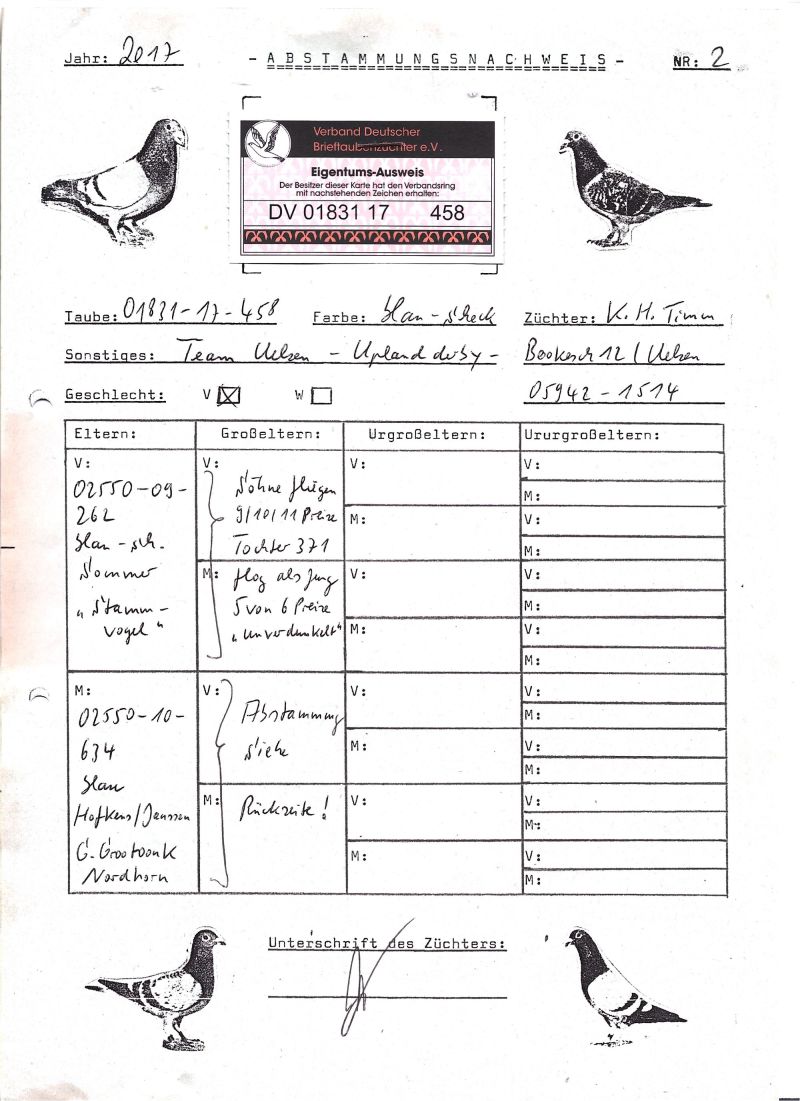 Jahr: 2017 - ABSTAMMUNGSNACHWEIS - NR: 2
Verband Deutscher
Brieftaubenzüchter e.V.
Eigentums-Ausweis
Der Besitzer dieser Karte hat den Verbandsring
mit nachstehenden Zeichen erhalten:
DV 01831 17 458
Taube: 01831-17-458 Farbe: blau-scheck Züchter: K. H. Timm
Sonstiges: Team Uelsen - Upland derby - Bookesch 12 / Uelsen
Geschlecht: V ☒ W ☐ 05942-1514
Eltern: Großeltern: Urgroßeltern: Ururgroßeltern:
V:
02550-09-
262
blau-sch.
Sommer
"Stamm-
vogel"
V:
Söhne fliegen
9/10/11 Preise
Tochter 371
M: flog als Jung
5 von 6 Preise
"unverdunkelt"
V:
M:
V:
M:
V:
M:
V:
M:
V:
M:
V:
M:
M:
02550-10-
634
blau
Hofkens/Janssen
G. Grootoonk
Nordhorn
V:
Abstammung
siehe
M:
Rückseite!
V:
M:
V:
M:
V:
M:
V:
M:
V:
M:
V:
M:
Unterschrift des Züchters: